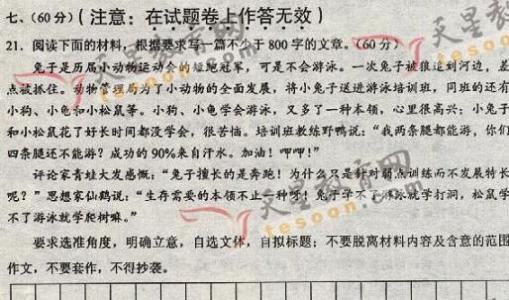 七、(60分)(注意：在试题卷上作答无效)
21．阅读下面的材料，根据要求写一篇不少于800字的文章。(60分)
兔子是历届小动物运动会的短跑冠军，可是不会游泳。一次兔子被狼追到河边，差
点被抓住。动物管理局为了小动物的全面发展，将小兔子送进游泳培训班，同班的还有
小狗、小龟和小松鼠等。小狗、小龟学会游泳，又多了一种本领，心里很高兴；小兔子
和小松鼠花了好长时间都没学会，很苦恼。培训班教练野鸭说：“我两条腿都能游，你们
四条腿还不能游？成功的90%来自汗水。加油！呷呷！”
评论家青蛙大发感慨：“兔子擅长的是奔跑！为什么只是针对弱点训练而不发展特长
呢？”思想家仙鹤说：“生存需要的本领不止一种呀！兔子学不了游泳就学打洞，松鼠学
不了游泳就学爬树嘛。”
要求选准角度，明确立意，自选文体，自拟标题；不要脱离材料内容及含意的范围
作文，不要套作，不得抄袭。
天星教育网
tesoon.com
天星教育网
tesoon.com
天星教育网
tesoon.com